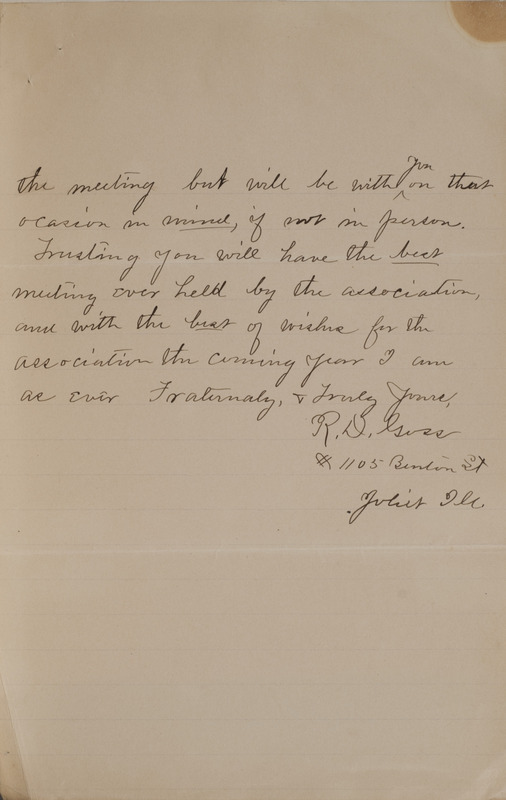 the meeting but will be with you on that
ocasion in mind, if not in person.
Trusting you will have the best
meeting ever held by the association,
and with the best of wishes for the
association the coming year I am
as ever Fraternaly, & Truly Yours,
R. D. Goss
# 1105 Benton St
Joliet Ill.